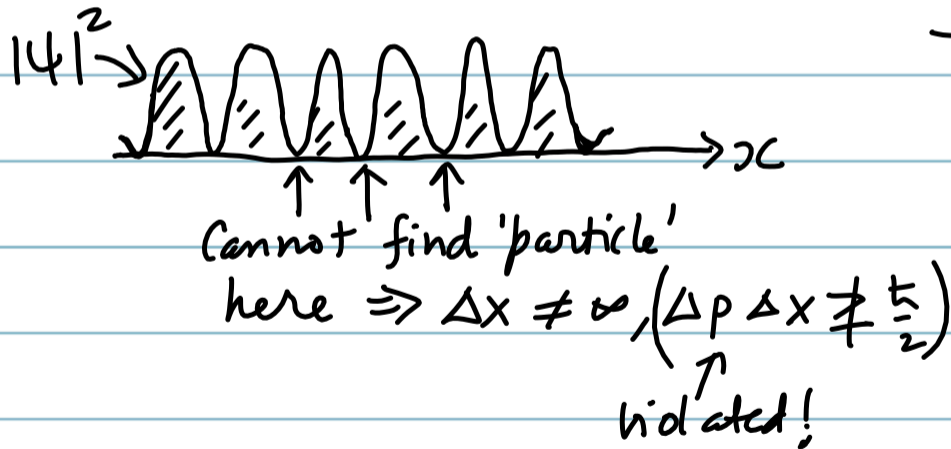 |ψ|²
x
Cannot find 'particle'
here ⇒ Δx ≠ ∞, (Δp Δx ≱ ħ/2)
violated!